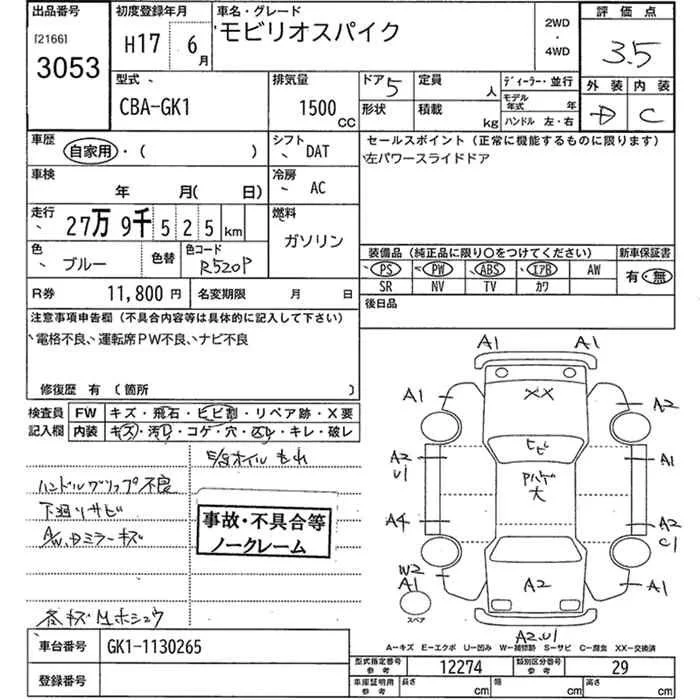 出品番号
[2166]
3053
初度登録年月
H17 6月
車名・グレード
モビリオスパイク
2WD
・
4WD
評価点
3.5
外装 内装
D C
型式
CBA-GK1
排気量
1500 CC
ドア 5
定員 人
形状
積載 kg
ディーラー・並行
モデル年式 年
ハンドル 左・右
車歴
自家用・( )
シフト
DAT
セールスポイント(正常に機能するものに限ります)
左パワースライドドア
車検
年 月( 日)
冷房
AC
走行
27万9千525km
燃料
ガソリン
色
ブルー
色替
色コード
R520P
装備品(純正品に限り○をつけてください)
新車保証書
PS PW ABS エアB AW
SR NV TV カワ
有・無
R券 11,800円
名変期限 月 日
後日品
注意事項申告欄(不具合内容等は具体的に記入して下さい)
電格不良、運転席PW不良、ナビ不良
修復歴 有(箇所 )
検査員記入欄
FW キズ・飛石・ヒビ割・リペア跡・X要
内装 キズ・汚レ・コゲ・穴・スレ・キレ・破レ
オイルもれ
ハンドルグリップ不良
下廻りサビ
A/W、Dミラーキズ
各キズ
ホシュウ
事故・不具合等
ノークレーム
A1 A1
A1 XX A2
A2 U1 ヒビ A1
Pハゲ 大
A4 A2 C1
W2 A1 A2 A1
スペア
A2.U1
A=キズ E=エクボ U=凹み W=補修跡 S=サビ C=腐食 XX=交換済
車台番号 GK1-1130265
登録番号
型式指定番号 参考 12274
類別区分番号 参考 29
車庫証明用 参考 長さ cm 幅 cm 高さ cm